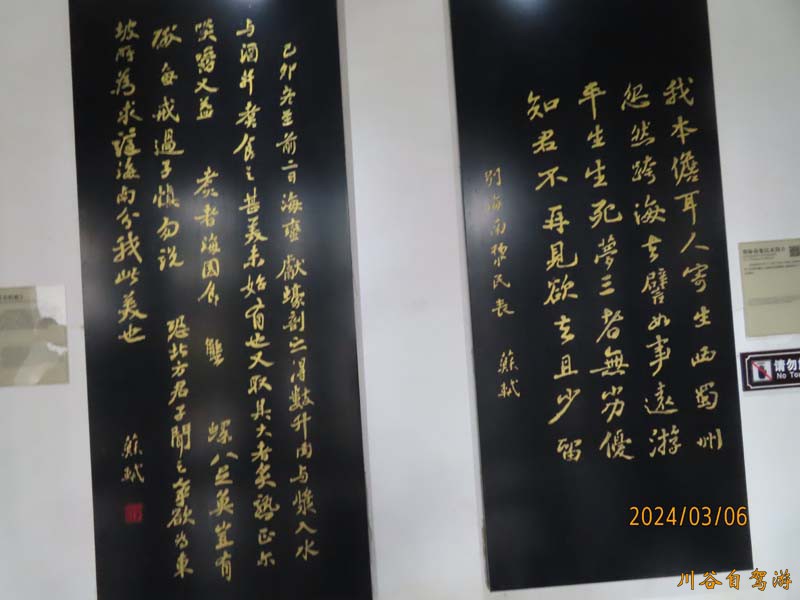 我本儋耳人寄生西蜀州
忽然跨海去譬如事遠游
平生生死夢三者無劣優
知君不再見欲去且少留
別海南黎民表 蘇軾
己卯冬至前二日海蠻獻蠔剖之得數升肉与漿入水
与酒并煮食之甚美未始有也又取其大者炙熟正尔
啖嚼又益 煮者海国食 蟹 螺八足魚豈有
每戒過子慎勿说 恐北方君子聞之争欲为東
坡所為求謫海南分我此美也
蘇軾
请勿
No Tou
2024/03/06
川谷自驾游